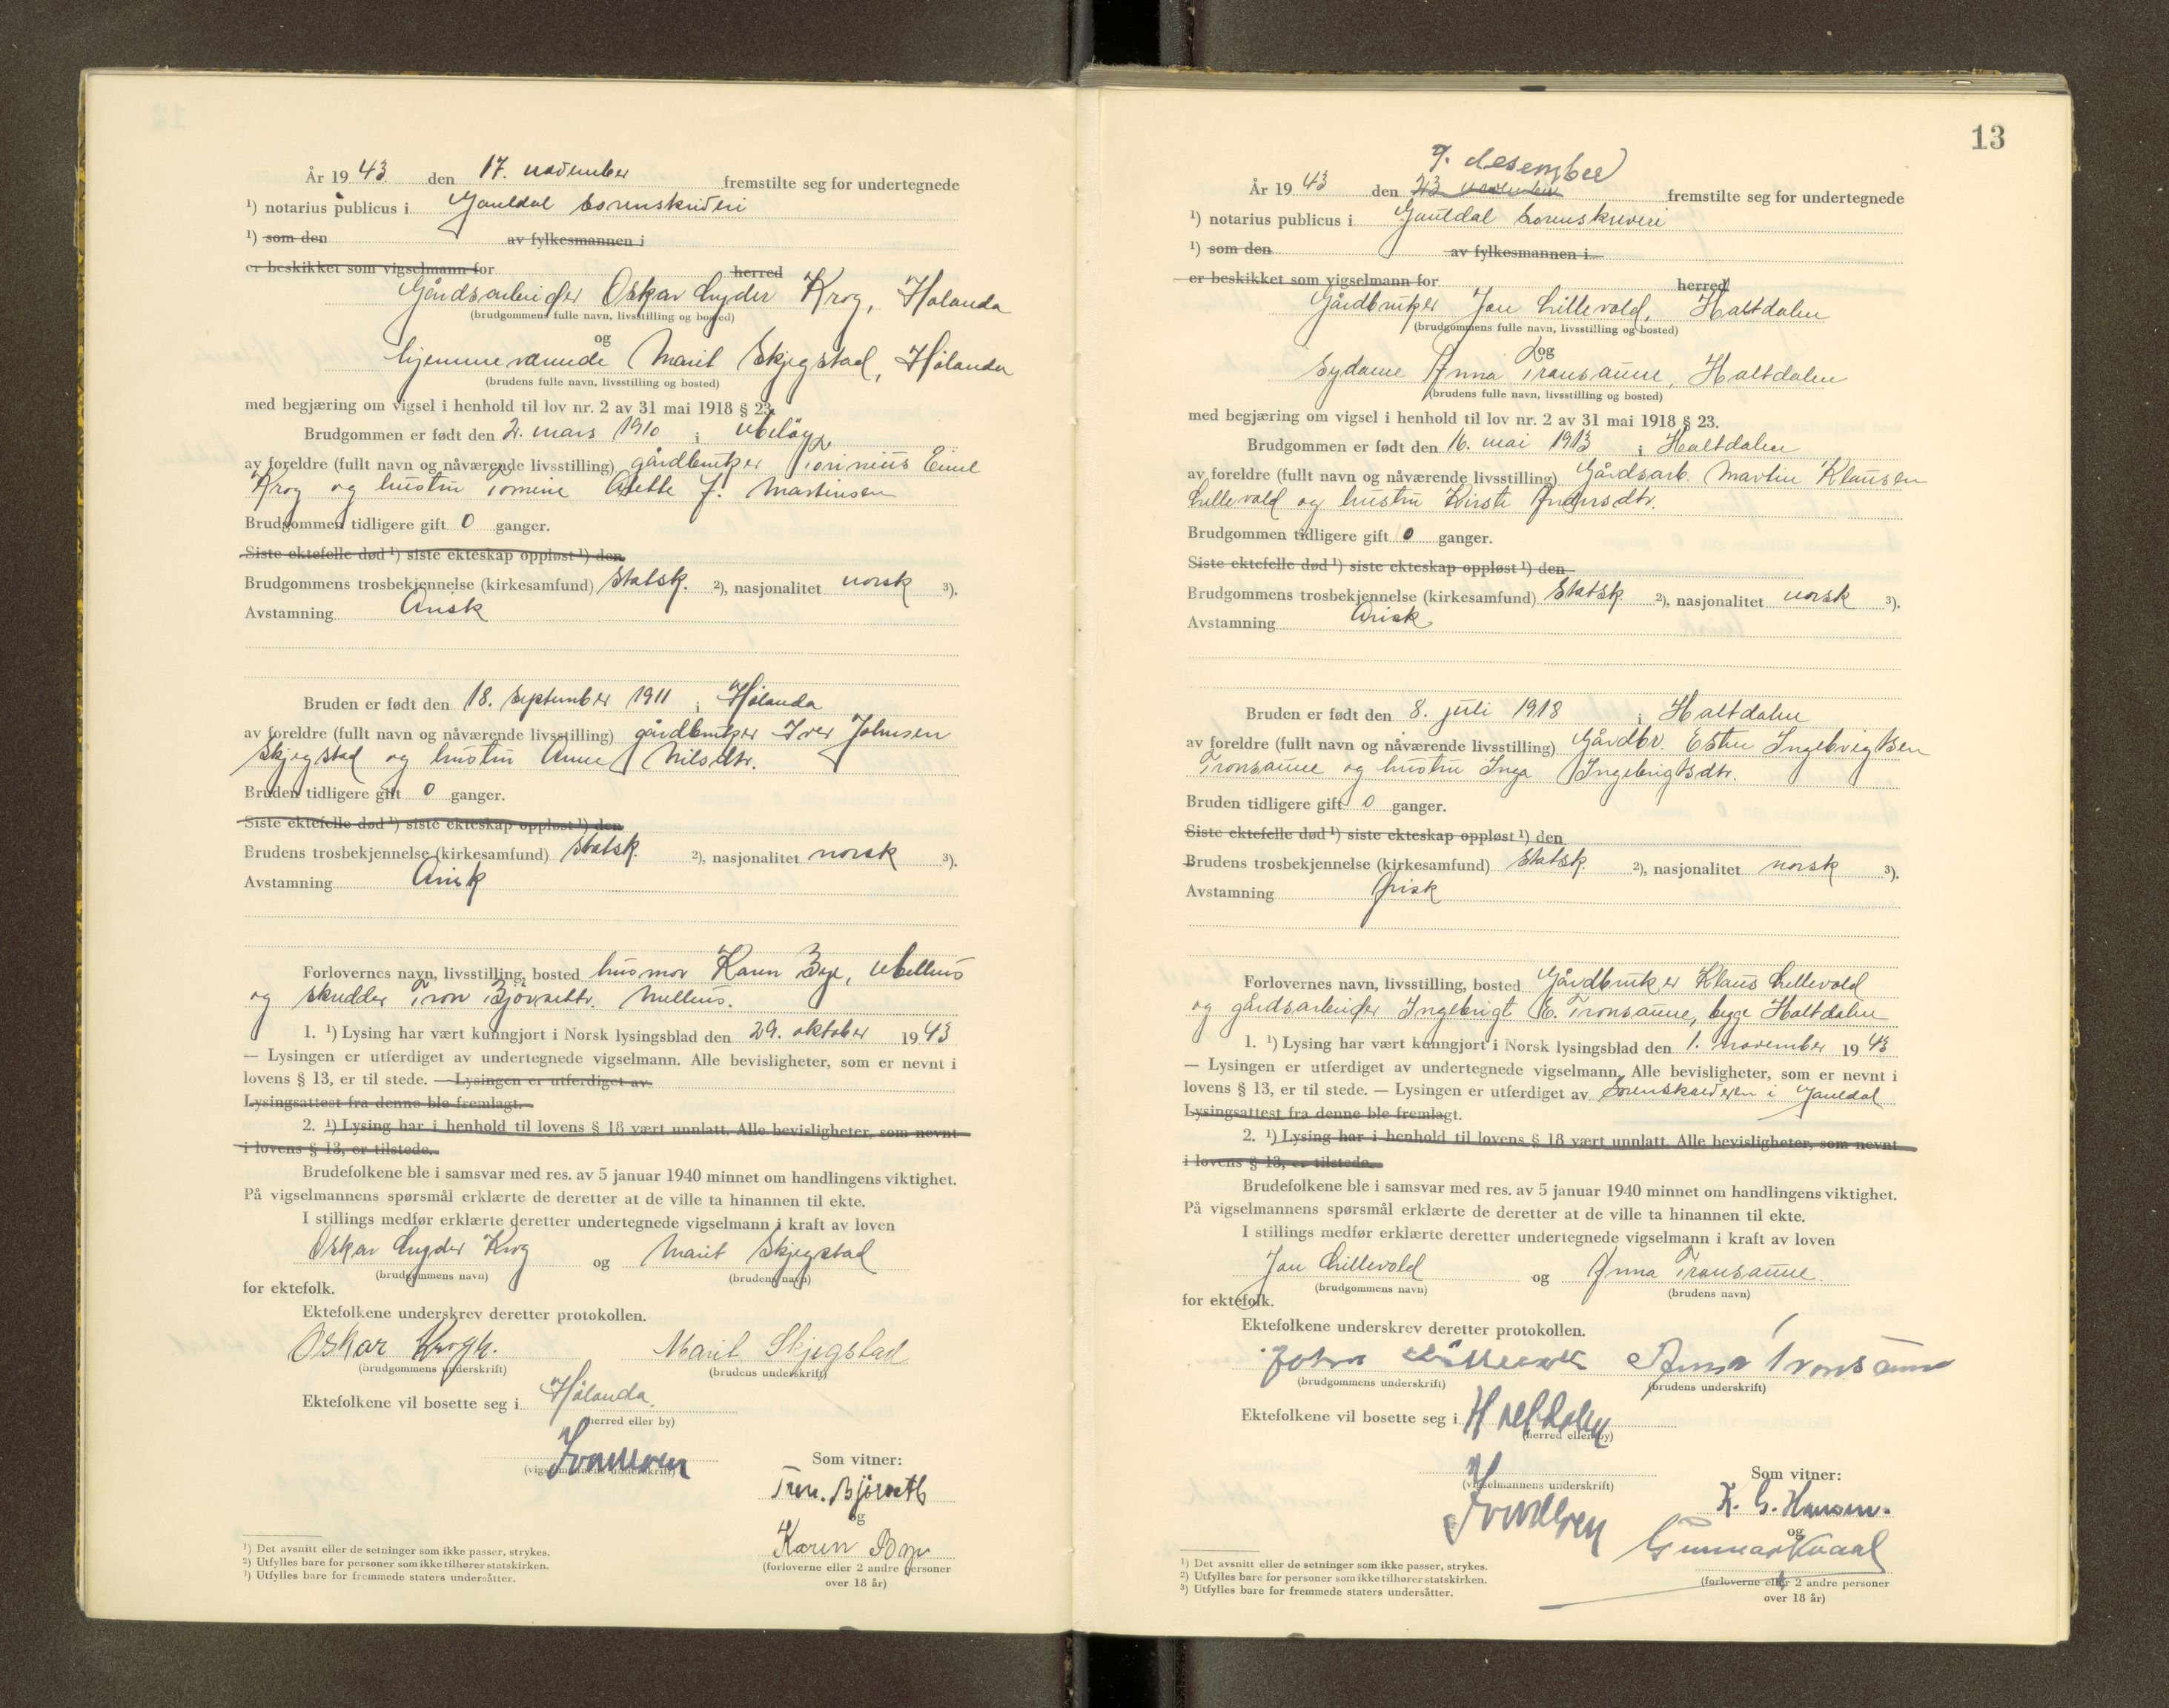 År 1943 den 17. november fremstilte seg for undertegnede
¹) notarius publicus i Gauldal Sorenskriveri
¹) som den av fylkesmannen i
er beskikket som vigselmann for herred
Gårdsarbeider Oskar Lyder Krog, Hølanda
(brudgommens fulle navn, livsstilling og bosted)
og
hjemmeværende Marit Skjegstad, Hølanda
(brudens fulle navn, livsstilling og bosted)
med begjæring om vigsel i henhold til lov nr. 2 av 31 mai 1918 § 23.
Brudgommen er født den 2. mars 1910 i
av foreldre (fullt navn og nåværende livsstilling) gårdbruker Emil
Krog og hustru Tomine J. Martinsen
Brudgommen tidligere gift 0 ganger.
Siste ektefelle død ¹) siste ekteskap oppløst ¹) den
Brudgommens trosbekjennelse (kirkesamfund) Statsk. ²), nasjonalitet norsk ³).
Avstamning Arisk
Bruden er født den 18. september 1911 i Hølanda
av foreldre (fullt navn og nåværende livsstilling) gårdbruker Iver Johnsen
Skjegstad og hustru Anne Nilsdtr.
Bruden tidligere gift 0 ganger.
Siste ektefelle død ¹) siste ekteskap oppløst ¹) den
Brudens trosbekjennelse (kirkesamfund) Statsk. ²), nasjonalitet norsk ³).
Avstamning Arisk
Forlovernes navn, livsstilling, bosted husmor Karen Bye, Melhus
og skredder Tron Bjørseth. Melhus.
1. ¹) Lysing har vært kunngjort i Norsk lysingsblad den 29. oktober 1943
— Lysingen er utferdiget av undertegnede vigselmann. Alle bevisligheter, som er nevnt i
lovens § 13, er til stede. — Lysingen er utferdiget av
Lysingsattest fra denne ble fremlagt.
2. ¹) Lysing har i henhold til lovens § 18 vært unnlatt. Alle bevisligheter, som nevnt
i lovens § 13, er tilstede.
Brudefolkene ble i samsvar med res. av 5 januar 1940 minnet om handlingens viktighet.
På vigselmannens spørsmål erklærte de deretter at de ville ta hinannen til ekte.
I stillings medfør erklærte deretter undertegnede vigselmann i kraft av loven
Oskar Lyder Krog og Marit Skjegstad
(brudgommens navn) (brudens navn)
for ektefolk.
Ektefolkene underskrev deretter protokollen.
Oskar Krogh. Marit Skjegstad
(brudgommens underskrift) (brudens underskrift)
Ektefolkene vil bosette seg i Hølanda.
(herred eller by)
(vigselmannens underskrift)
Som vitner:
Tron. Bjørseth
og
Karen Bye
(forloverne eller 2 andre personer
over 18 år)
¹) Det avsnitt eller de setninger som ikke passer, strykes.
²) Utfylles bare for personer som ikke tilhører statskirken.
³) Utfylles bare for fremmede staters undersåtter.
13
9. desember
År 1943 den 23 november fremstilte seg for undertegnede
¹) notarius publicus i Gauldal Sorenskriveri
¹) som den av fylkesmannen i
er beskikket som vigselmann for herred
Gårdbruker Jon Lillevold, Haltdalen
(brudgommens fulle navn, livsstilling og bosted)
og
Sydame Anna Tronsaune, Haltdalen
(brudens fulle navn, livsstilling og bosted)
med begjæring om vigsel i henhold til lov nr. 2 av 31 mai 1918 § 23.
Brudgommen er født den 16. mai 1913 i Haltdalen
av foreldre (fullt navn og nåværende livsstilling) Gårdsarb. Martin Klausen
Lillevold og hustru Kirsti
Brudgommen tidligere gift 0 ganger.
Siste ektefelle død ¹) siste ekteskap oppløst ¹) den
Brudgommens trosbekjennelse (kirkesamfund) Statsk. ²), nasjonalitet norsk ³).
Avstamning Arisk
Bruden er født den 8. juli 1918 i Haltdalen
av foreldre (fullt navn og nåværende livsstilling) Gårdbr. Esten Ingebrigtsen
Tronsaune og hustru Inga Ingebrigtsdtr.
Bruden tidligere gift 0 ganger.
Siste ektefelle død ¹) siste ekteskap oppløst ¹) den
Brudens trosbekjennelse (kirkesamfund) Statsk. ²), nasjonalitet norsk ³).
Avstamning Arisk
Forlovernes navn, livsstilling, bosted Gårdbruker Klaus Lillevold
og gårdsarbeider Ingebrigt E. Tronsaune, begge Haltdalen
1. ¹) Lysing har vært kunngjort i Norsk lysingsblad den 1. november 1943
— Lysingen er utferdiget av undertegnede vigselmann. Alle bevisligheter, som er nevnt i
lovens § 13, er til stede. — Lysingen er utferdiget av Sorenskriveren i Gauldal
Lysingsattest fra denne ble fremlagt.
2. ¹) Lysing har i henhold til lovens § 18 vært unnlatt. Alle bevisligheter, som nevnt
i lovens § 13, er tilstede.
Brudefolkene ble i samsvar med res. av 5 januar 1940 minnet om handlingens viktighet.
På vigselmannens spørsmål erklærte de deretter at de ville ta hinannen til ekte.
I stillings medfør erklærte deretter undertegnede vigselmann i kraft av loven
Jon Lillevold og Anna Tronsaune.
(brudgommens navn) (brudens navn)
for ektefolk.
Ektefolkene underskrev deretter protokollen.
John Lillevold Anna Tronsaune
(brudgommens underskrift) (brudens underskrift)
Ektefolkene vil bosette seg i Haltdalen
(herred eller by)
(vigselmannens underskrift)
Som vitner:
K. G. Hansen.
og
Gunnar Kvaal
(forloverne eller 2 andre personer
over 18 år)
¹) Det avsnitt eller de setninger som ikke passer, strykes.
²) Utfylles bare for personer som ikke tilhører statskirken.
³) Utfylles bare for fremmede staters undersåtter.